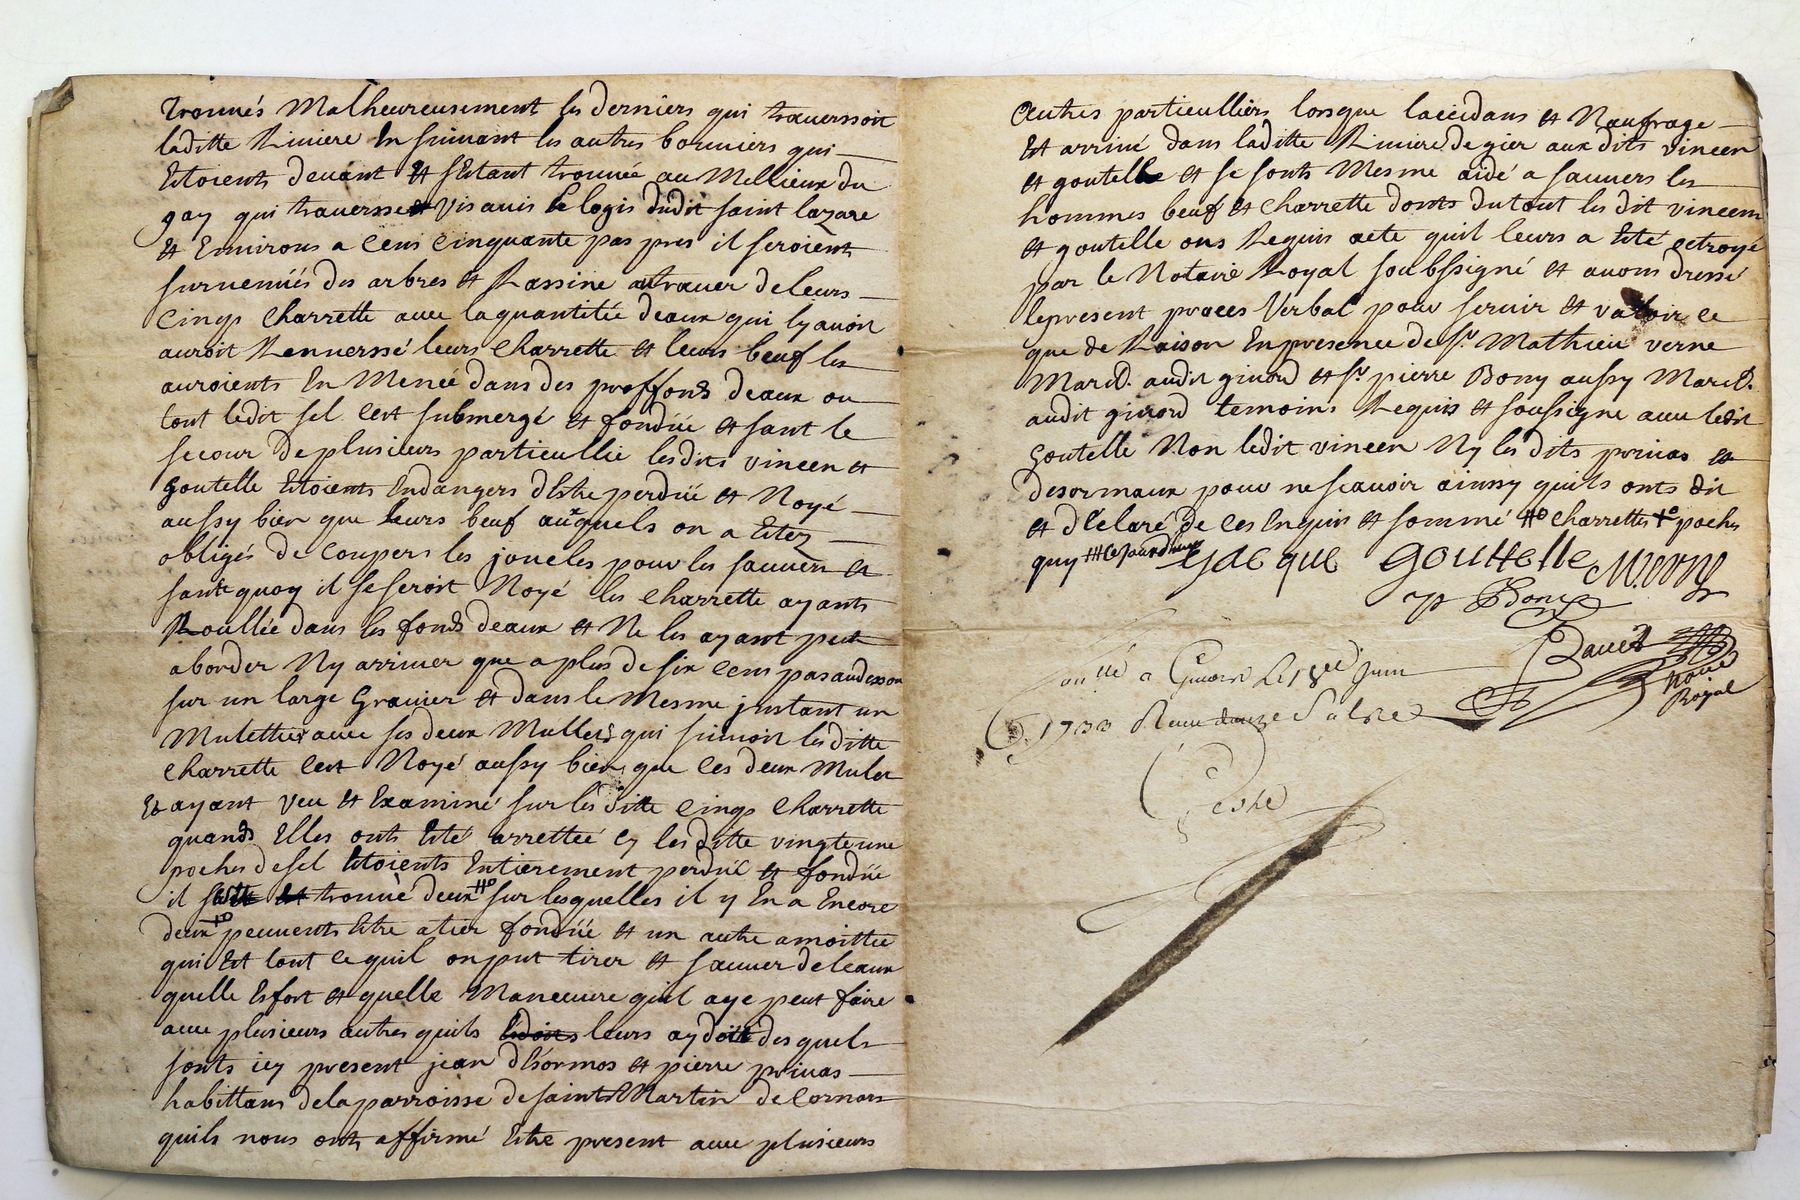 trouvés Malheureusement les derniers qui traversoit
laditte Riviere En suivant les autres bouviers qui
Etoients devant et s'Estant trouvée au Mellieux du
gay qui traversse Vis avis le logis dudit saint lazare
et Environs a Cens Cinquante pas pres il seroients
survenuës des arbres et Rassine autraver de leurs
Cinqs Charrette avec la quantitée deaux qui lyavoit
auroit Renverssé leurs Charrette et leurs beuf les
auroients En Menée dans des proffonds deaux ou
tout ledit sel cest submergé et fondüe et sant le
secour de plusieurs particullie lesdits vincen et
goutelle Etoients Endangers d'Estre perdüe et Noyé
aussy bien que leurs beuf auxquels on a Etez
obligés de Coupers les joucles pour les sauvers et
sant quoy il se seroit Noyé les Charrette ayants
Roullée dans les fonds deaux et Ne les ayant peut
aborder Ny arriver que a plus de six Cens pas audesson
sur un large Gravier et dans le Mesme jnstant un
Mulettier avec ses deux Mullets qui suivoit lesditte
Charrette Cest Noyé aussy bien que Ces deux Mulet
Et ayant Veu et Examiné sur lesditte Cinqs Charrette
quands Elles onts Eté arrettéé Cy lesditte vingteune
poches de sel Etoients Entierement perdüe et fondüe
il trouvé deux sur lesquelles il y En a Encore
deux peuvents Etre atier fondüe et un autre amoittie
qui Est tout ce quil on put tirer et sauver de leaux
quelle Esfort et quelle Maneuvre quil aye peut faire
avec plusieurs autres quils leurs aydoit desquels
sonts icy present jean d'Esormos et pierre privas
habittans de la parroisse de saint Martin de Cornas
quils nous onts affirmé Estre present avec plusieurs
Autres particulliers lorsque laccidans et Naufrage
Est arrivé dans laditte Riviere de gier aux dits vincen
et goutelle et se sonts Mesme aidé a sauvers les
hommes beuf et Charrette donts du tout les dit vincen
et goutelle ons Requis acte quil leurs a Eté octroyé
par le Notaire Royal soubssigné et avons dressé
le present proces Verbal pour servir et valoir ce
que de Raison En presence de Sr Mathieu verne
March. audit givord et Sr pierre Bony aussy March.
audit givord temoins Requis et soussigne avec ledit
goutelle Non ledit vincen Ny les dits privas et
desormaux pour ne scavoir ainssy quils onts dit
et d'Eclaré de Ces Enquis et sommé Charrettes poches
quy Cejourdhuy jacque Gouttelle M. verne
P Bony
Notre
Royal
a Givors Le 18e Juin
1733 Receu douze Sols